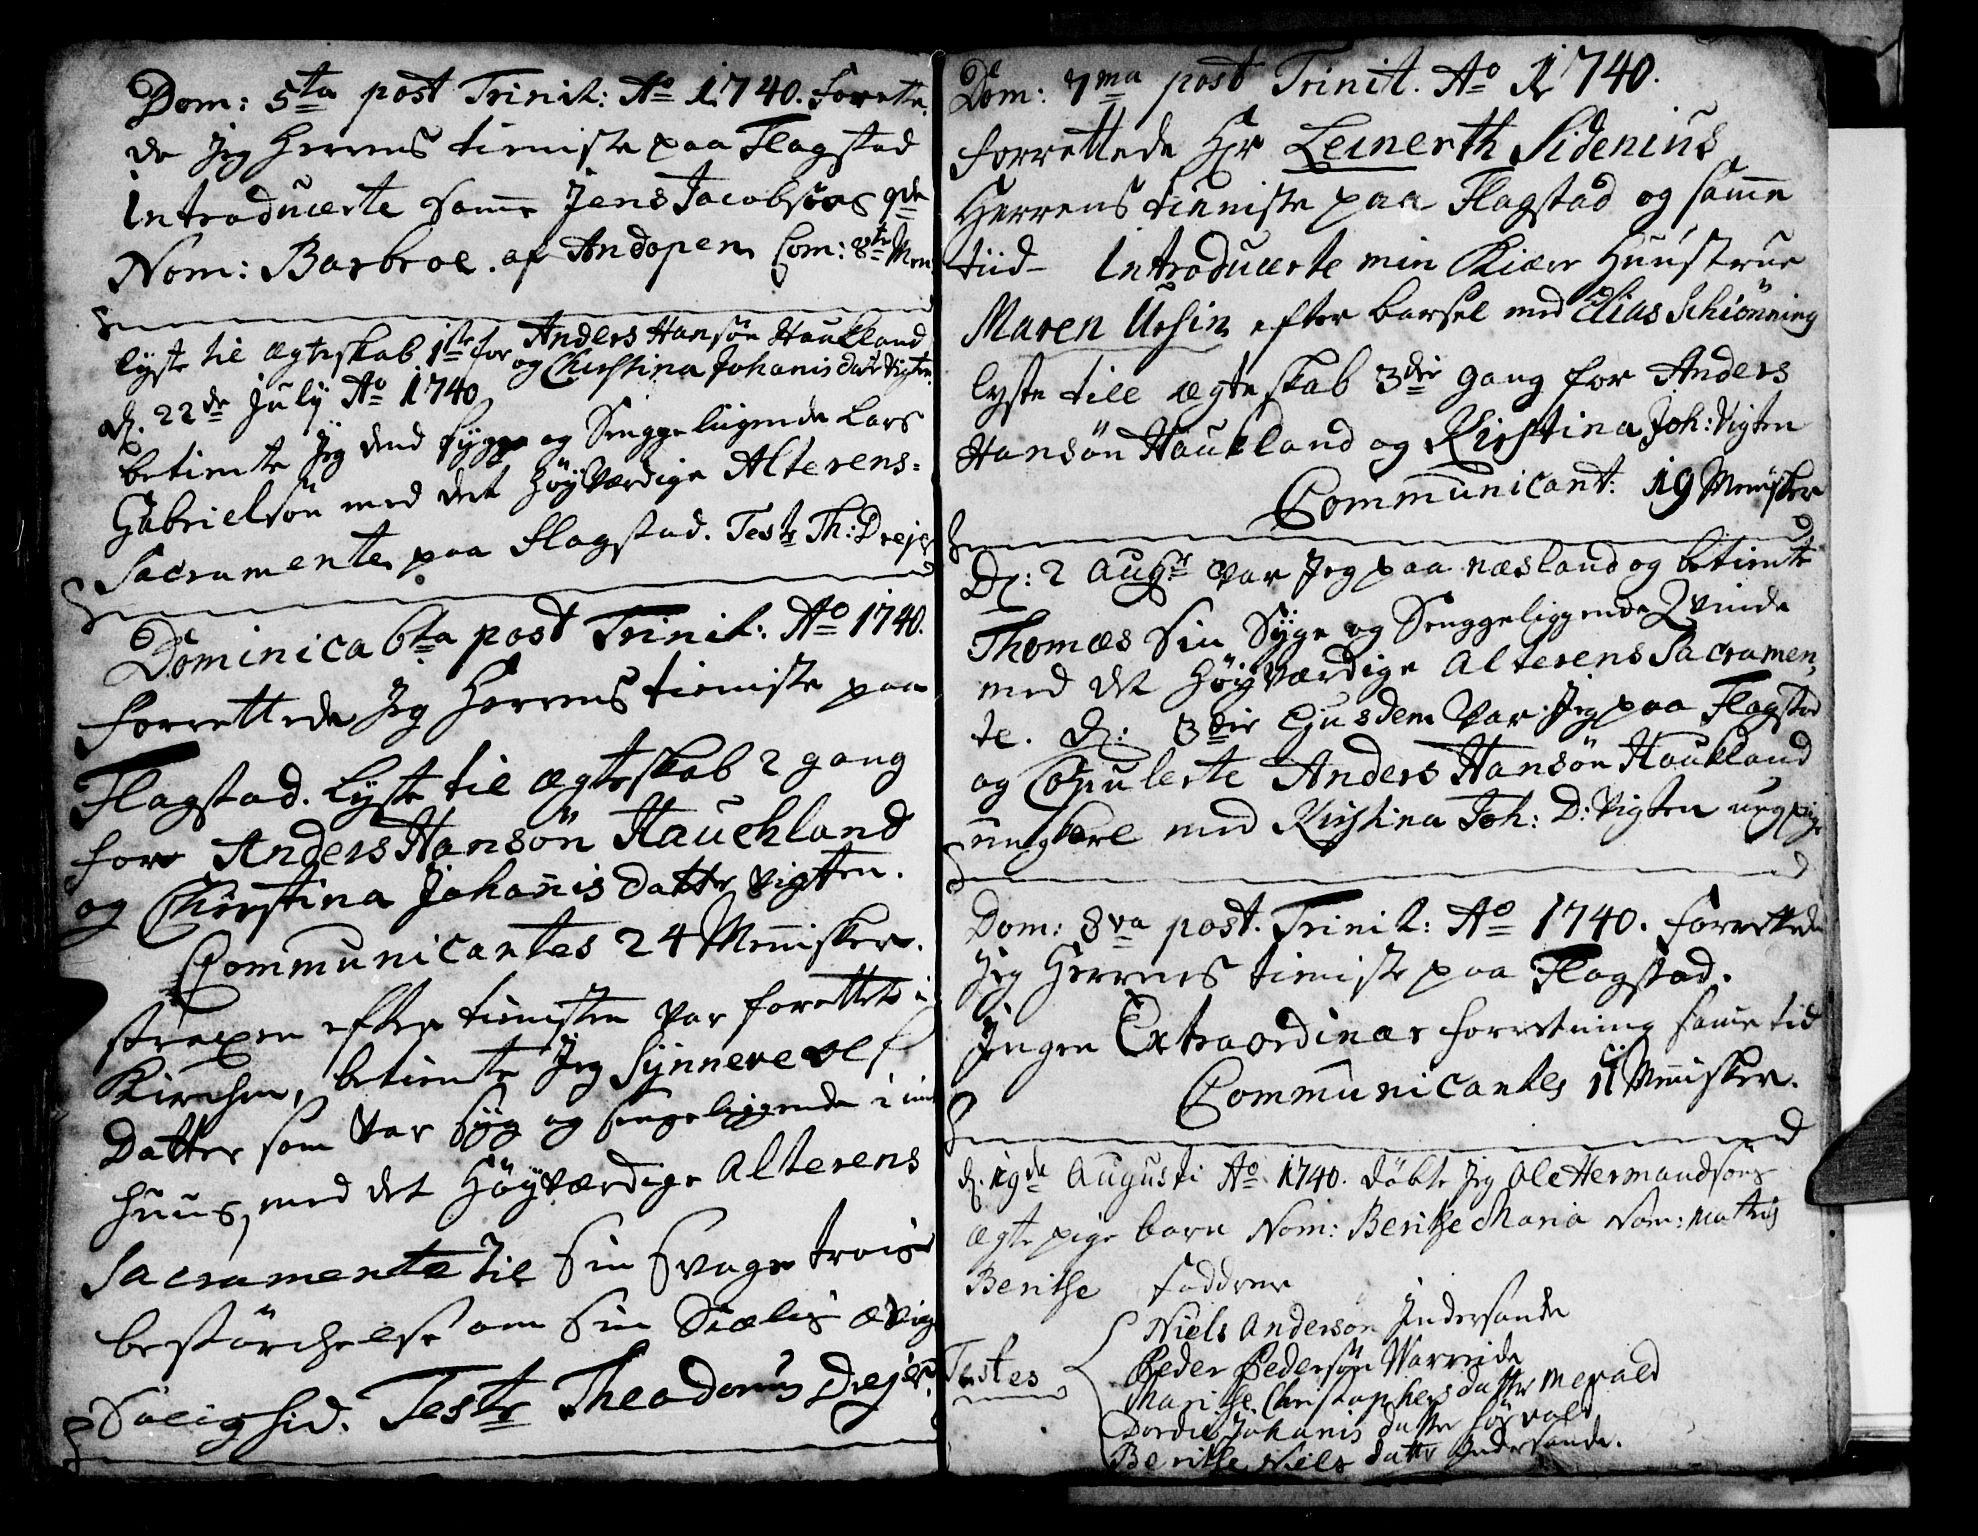 Dom: 5ta post Trinit: Ao 1740. forrette
de Jeg Herrens tieniste paa Flagstad
Introducerte samme Jens Jacobsøns qde
Nom: Barbroe. af Andopen Com: 8te Men
lyste til ægteskab 1ste for Anders Hansön Haukland
og Christina Johanisdatr Vigten.
d. 22de July Ao 1740
betiente Jeg dend syge og Senggeligende Lars
Gabrielsön med det höyværdige Alterens-
Sacramente paa Flagstad. Test Th: Drejer
Dominica 6ta post Trinit: Ao 1740.
forrettede Jeg Herrens tieniste paa
Flagstad. lyste til ægteskab 2 gang
for Anders Hansön Hauchland
og Christina Johanis datter Vigten.
Communicantes 24 Mennisker.
straxen efter tienisten var forettet i
Kirchen, betiente Jeg Synneve Ol
Datter som var Syg og sengeliggende i
huus, med det Höyværdige Alterens
Sacramente til sin svage troes
bestörchelse om sin Siælis ævig
Salighed. Test Theodorus Drejer.
Dom: 7ma post Trinit. Ao 1740.
forrettede Hr Leinerth Sidenius
Herrens tieniste paa Flagstad og samme
tiid Introducerte min Kiære Huustrue
Maren Ursin efter barsel med Elias Schiönning
lyste till ægteskab 3die gang for Anders
Hansön Haukland og Kirstina Joh: Vigten
Communicant: 19 Mennisker
D: 2 Augr var Jeg paa næsland og betiente
Thomæs sin Syge og Senggeliggende Qvinde
med det höyværdige Alterens Sacramen-
te. d: 3die Ejusdem var Jeg paa Flagstad
og Copulerte Anders Hansön Haukland
ungkarl med Kirstina Joh: D: Vigten ung pige
Dom: 8va post. Trinit: Ao 1740. forrettede
Jeg Herrens tieniste paa Flagstad.
Ingen Extraordinær forretning samme tid
Communicantes 11 Mennisker.
d. 19de Augusti Ao 1740. döbte Jeg Ole Hermandsöns
ægte pige barn Nom: Berithe Maria Nom: Matris
Berithe faddrene
Testes
Niels Andersön Indersande
Peder Pedersön
Marithe Christophersdatter
Dordi Johanis datter
Berithe Niels datter Indersande.